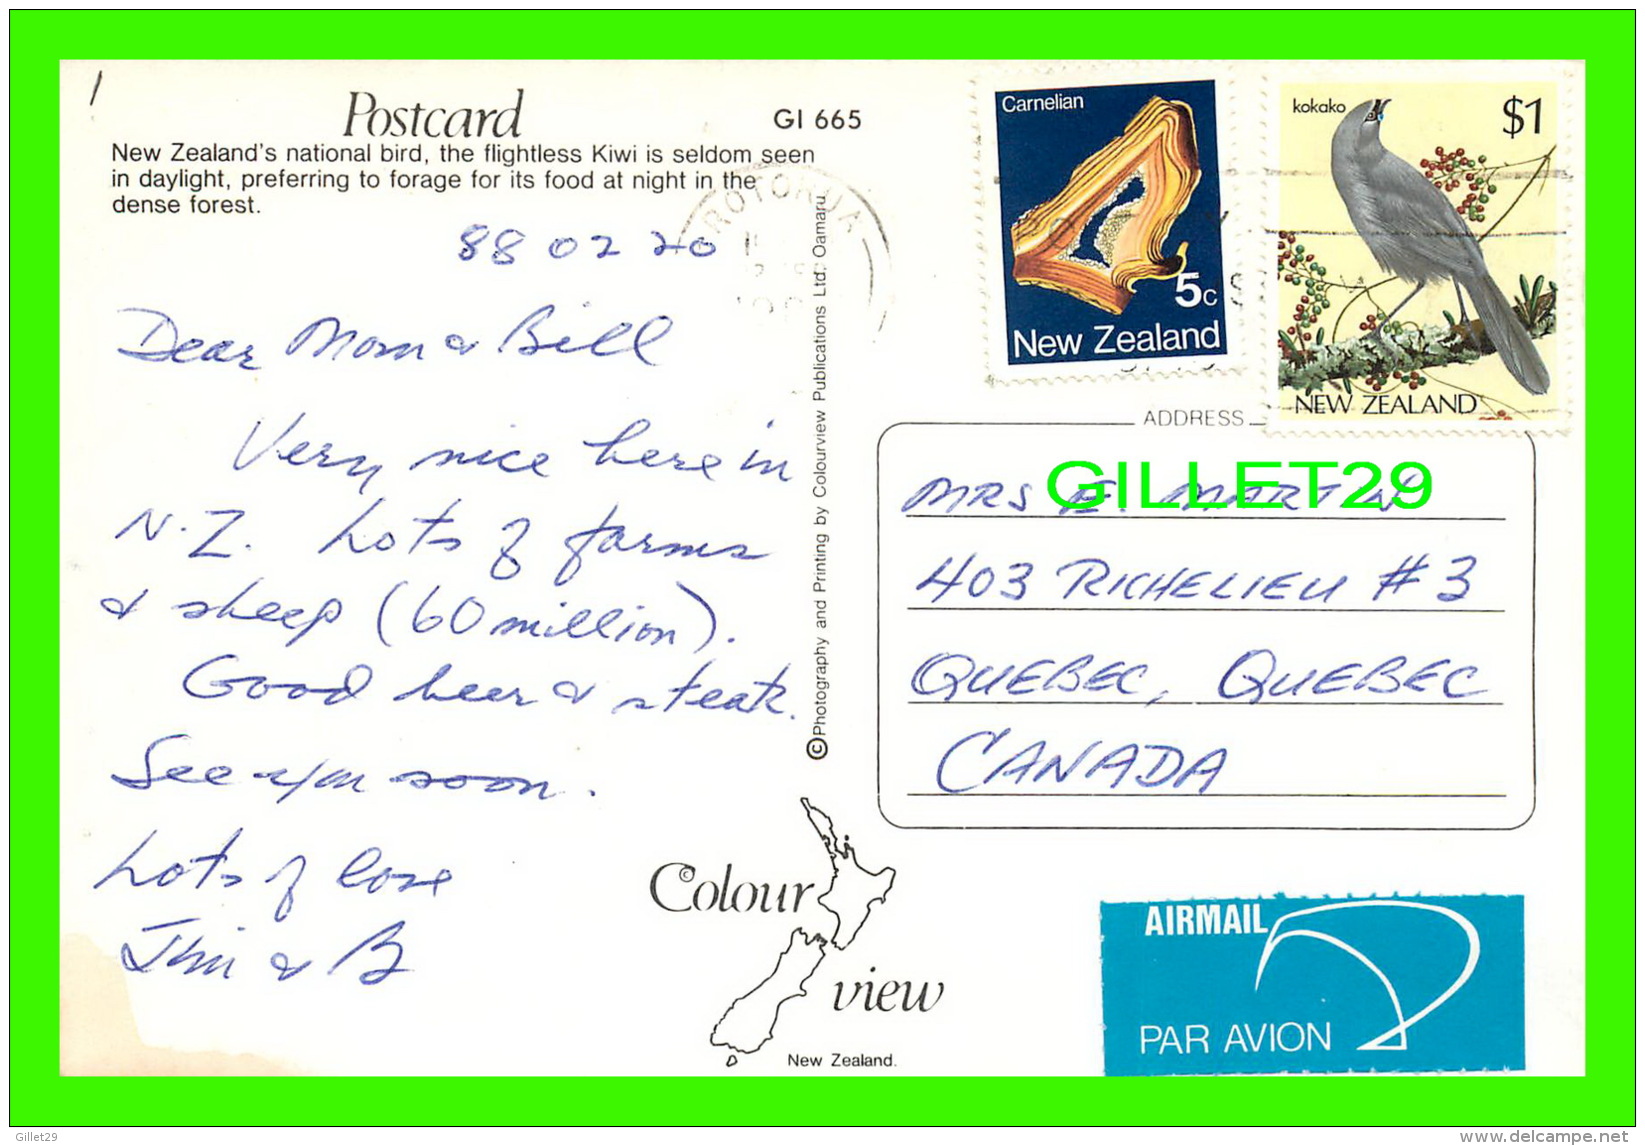 Postcard
GI 665
New Zealand's national bird, the flightless Kiwi is seldom seen
in daylight, preferring to forage for its food at night in the
dense forest.
88 02 20
Dear Mom & Bill
Very nice here in
N.Z. Lots of farms
& sheep (60 million).
Good beer & steak.
See you soon.
Lots of love
Jim & B
ROTORUA
©Photography and Printing by Colourview Publications Ltd. Oamaru
Carnelian
5c
New Zealand
kokako
$1
NEW ZEALAND
ADDRESS
GILLET29
MRS E. MARTIN
403 RICHELIEU #3
QUEBEC, QUEBEC
CANADA
Colour
©
view
New Zealand.
AIRMAIL
PAR AVION
Gillet29
delcampe.net